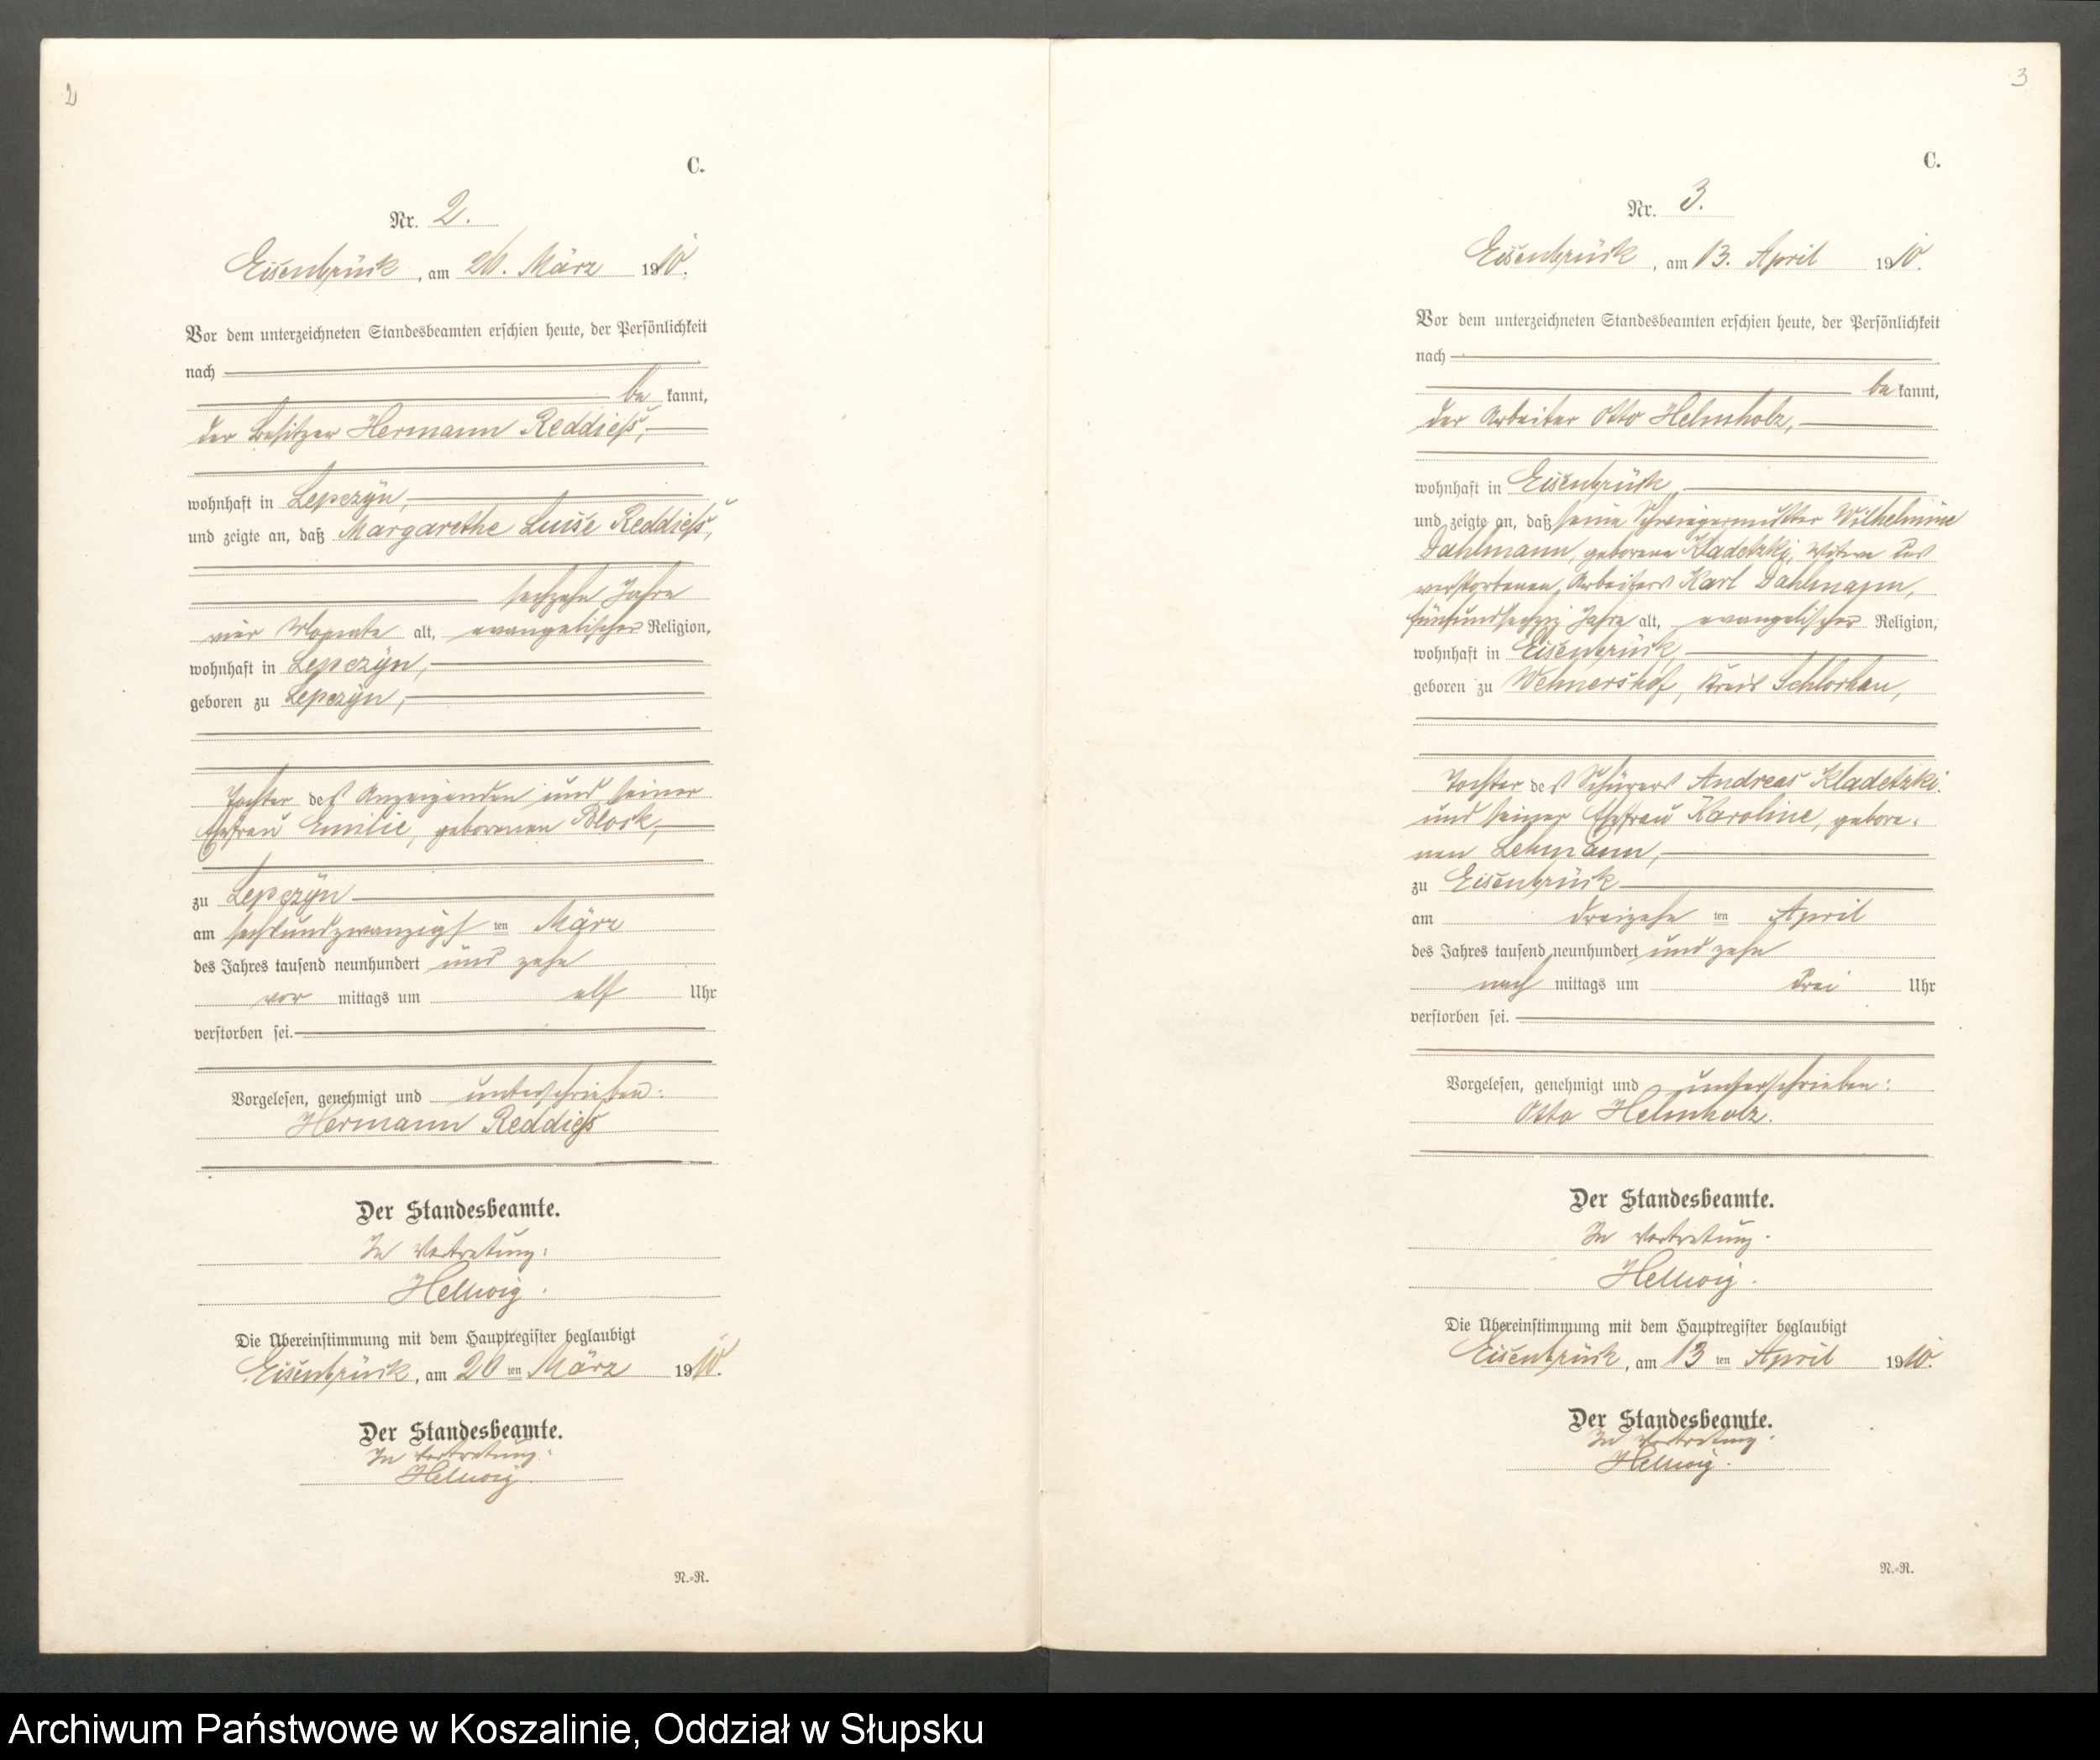 2
C.
Nr. 2.
Eisenbrück, am 26. März 1910.
Vor dem unterzeichneten Standesbeamten erschien heute, der Persönlichkeit
nach
be kannt,
der Besitzer Hermann Reddieß,
wohnhaft in Lepczyn,
und zeigte an, daß Margarethe Luise Reddieß,
sechzehn Jahre
vier Monate alt, evangelischer Religion,
wohnhaft in Lepczyn,
geboren zu Lepczyn,
Tochter des Anzeigenden und seiner
Ehefrau Emilie, geborenen Block,
zu Lepczyn
am sechsundzwanzigsten März
des Jahres tausend neunhundert und zehn
vor mittags um elf Uhr
verstorben sei.
Vorgelesen, genehmigt und unterschrieben:
Hermann Reddieß
Der Standesbeamte.
In Vertretung:
Hellwig.
Die Übereinstimmung mit dem Hauptregister beglaubigt
Eisenbrück, am 26 ten März 1910.
Der Standesbeamte.
In Vertretung:
Hellwig.
N.=R.
3
C.
Nr. 3.
Eisenbrück, am 13. April 1910.
Vor dem unterzeichneten Standesbeamten erschien heute, der Persönlichkeit
nach
be kannt,
der Arbeiter Otto Helmholz,
wohnhaft in Eisenbrück,
und zeigte an, daß seine Schwiegermutter Wilhelmine
Dahlmann, geborene Kladetzki, Witwe des
verstorbenen Arbeiters Karl Dahlmann,
fünfundsechzig Jahre alt, evangelischer Religion,
wohnhaft in Eisenbrück,
geboren zu Wehnershof, Kreis Schlochau,
Tochter des Andreas Kladetzki
und seiner Ehefrau Karoline, gebore-
nen Lehmann,
zu Eisenbrück
am dreizehn ten April
des Jahres tausend neunhundert und zehn
nach mittags um drei Uhr
verstorben sei.
Vorgelesen, genehmigt und unterschrieben:
Otto Helmholz.
Der Standesbeamte.
In Vertretung.
Hellwig.
Die Übereinstimmung mit dem Hauptregister beglaubigt
Eisenbrück, am 13 ten April 1910.
Der Standesbeamte.
In Vertretung.
Hellwig.
N.=R.
Archiwum Państwowe w Koszalinie, Oddział w Słupsku